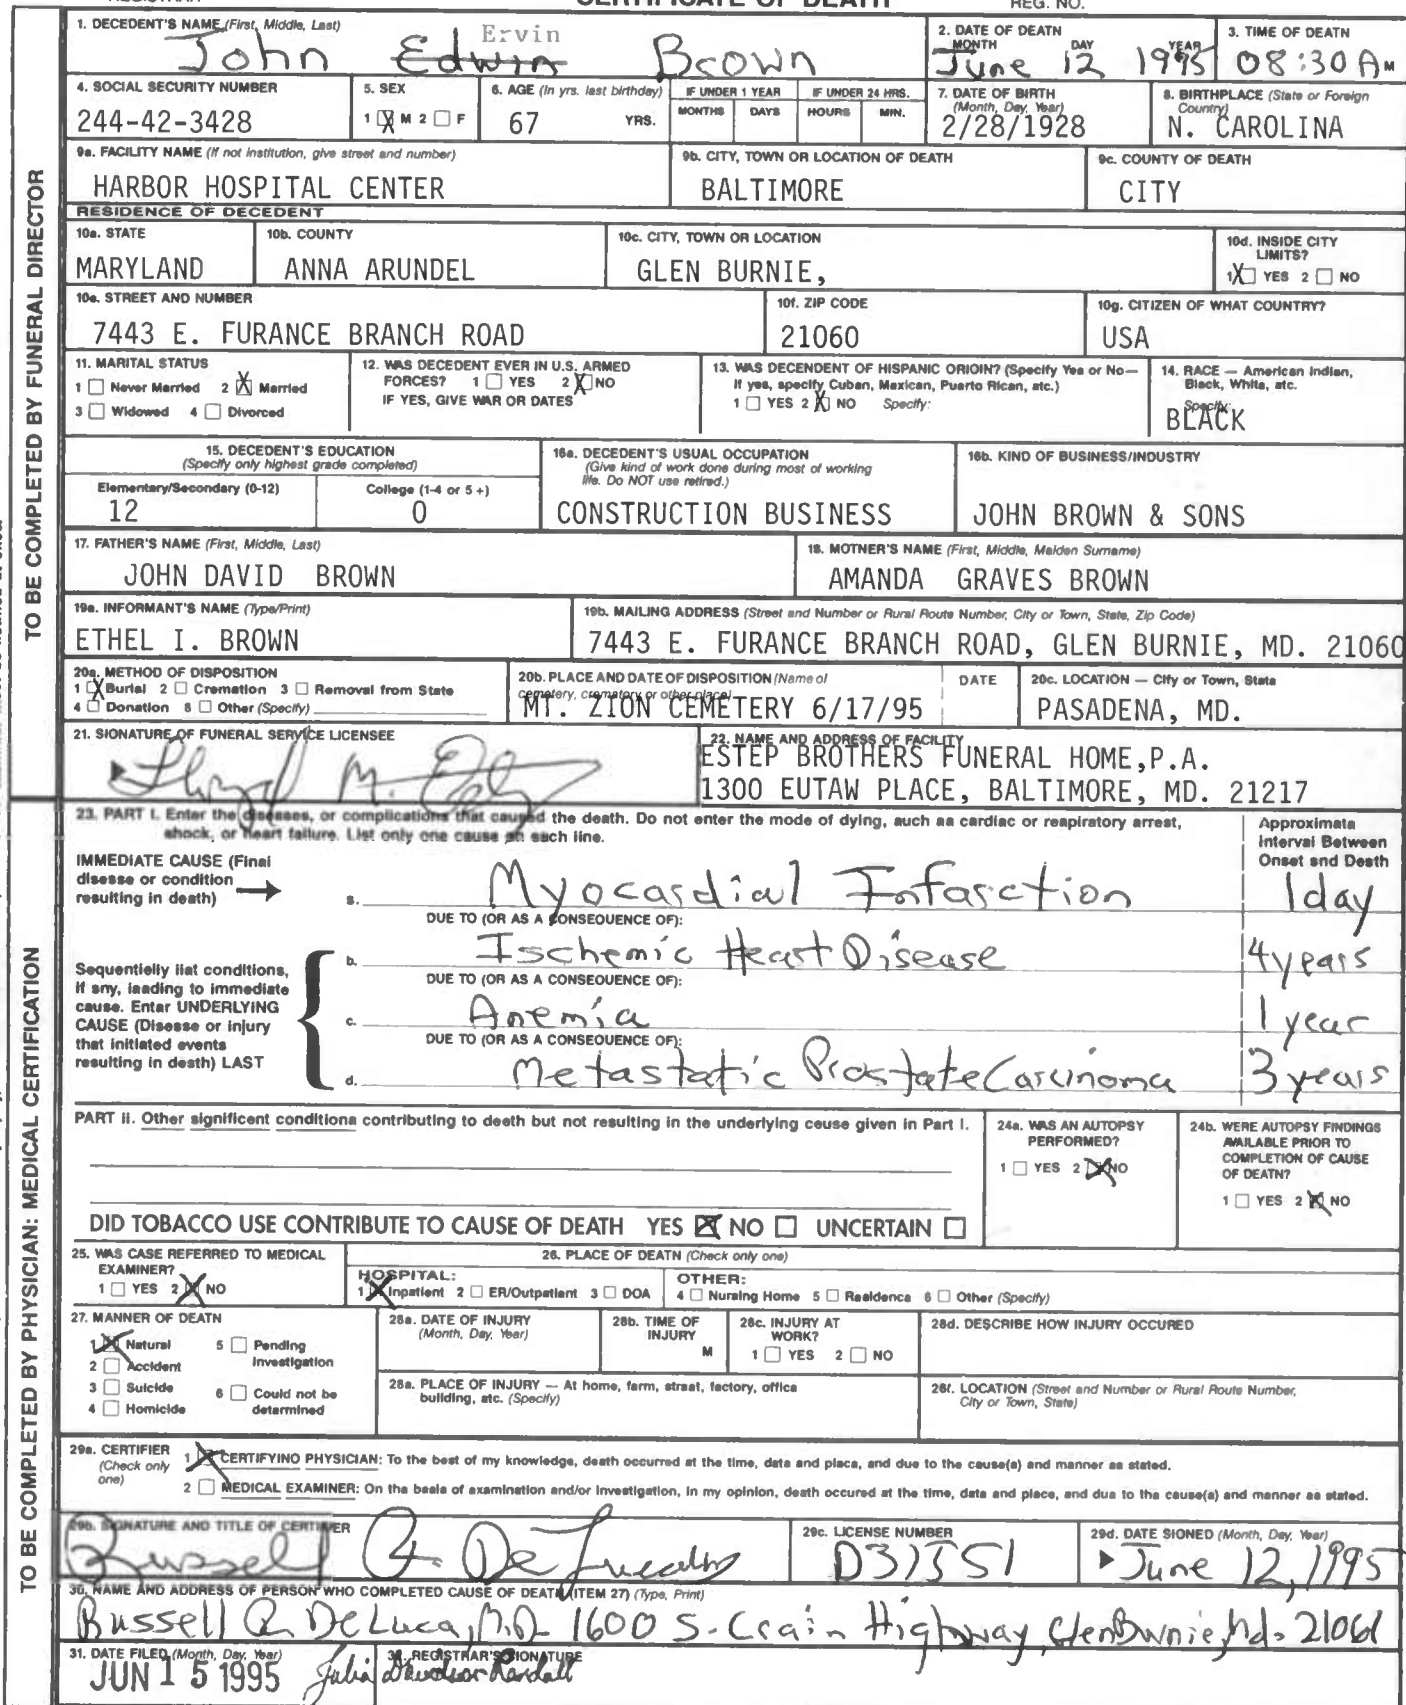 REGISTRAR CERTIFICATE OF DEATH REG. NO.
1. DECEDENT'S NAME (First, Middle, Last)
Ervin
John Edwin Brown
2. DATE OF DEATH
MONTH DAY YEAR
June 12 1995
3. TIME OF DEATH
08:30 AM
4. SOCIAL SECURITY NUMBER
244-42-3428
5. SEX
1 X M 2 □ F
6. AGE (In yrs. last birthday)
67 YRS.
IF UNDER 1 YEAR
MONTHS DAYS
IF UNDER 24 HRS.
HOURS MIN.
7. DATE OF BIRTH
(Month, Day, Year)
2/28/1928
8. BIRTHPLACE (State or Foreign
Country)
N. CAROLINA
9a. FACILITY NAME (If not institution, give street and number)
HARBOR HOSPITAL CENTER
9b. CITY, TOWN OR LOCATION OF DEATH
BALTIMORE
9c. COUNTY OF DEATH
CITY
RESIDENCE OF DECEDENT
10a. STATE
MARYLAND
10b. COUNTY
ANNA ARUNDEL
10c. CITY, TOWN OR LOCATION
GLEN BURNIE,
10d. INSIDE CITY
LIMITS?
1 X YES 2 □ NO
10e. STREET AND NUMBER
7443 E. FURANCE BRANCH ROAD
10f. ZIP CODE
21060
10g. CITIZEN OF WHAT COUNTRY?
USA
11. MARITAL STATUS
1 □ Never Married 2 X Married
3 □ Widowed 4 □ Divorced
12. WAS DECEDENT EVER IN U.S. ARMED
FORCES? 1 □ YES 2 X NO
IF YES, GIVE WAR OR DATES
13. WAS DECENDENT OF HISPANIC ORIGIN? (Specify Yes or No—
If yes, specify Cuban, Mexican, Puerto Rican, etc.)
1 □ YES 2 X NO Specify:
14. RACE — American Indian,
Black, White, etc.
Specify:
BLACK
15. DECEDENT'S EDUCATION
(Specify only highest grade completed)
Elementary/Secondary (0-12) College (1-4 or 5 +)
12 0
16a. DECEDENT'S USUAL OCCUPATION
(Give kind of work done during most of working
life. Do NOT use retired.)
CONSTRUCTION BUSINESS
16b. KIND OF BUSINESS/INDUSTRY
JOHN BROWN & SONS
17. FATHER'S NAME (First, Middle, Last)
JOHN DAVID BROWN
18. MOTHER'S NAME (First, Middle, Maiden Surname)
AMANDA GRAVES BROWN
19a. INFORMANT'S NAME (Type/Print)
ETHEL I. BROWN
19b. MAILING ADDRESS (Street and Number or Rural Route Number, City or Town, State, Zip Code)
7443 E. FURANCE BRANCH ROAD, GLEN BURNIE, MD. 21060
20a. METHOD OF DISPOSITION
1 X Burial 2 □ Cremation 3 □ Removal from State
4 □ Donation 8 □ Other (Specify)
20b. PLACE AND DATE OF DISPOSITION (Name of
cemetery, crematory or other place) DATE
MT. ZION CEMETERY 6/17/95
20c. LOCATION — City or Town, State
PASADENA, MD.
21. SIGNATURE OF FUNERAL SERVICE LICENSEE
22. NAME AND ADDRESS OF FACILITY
ESTEP BROTHERS FUNERAL HOME,P.A.
1300 EUTAW PLACE, BALTIMORE, MD. 21217
TO BE COMPLETED BY FUNERAL DIRECTOR
23. PART I. Enter the diseases, or complications that caused the death. Do not enter the mode of dying, such as cardiac or respiratory arrest,
shock, or heart failure. List only one cause on each line.
Approximate
Interval Between
Onset and Death
IMMEDIATE CAUSE (Final
disease or condition
resulting in death)
a. Myocardial Infarction 1 day
DUE TO (OR AS A CONSEQUENCE OF):
b. Ischemic Heart Disease 4 years
DUE TO (OR AS A CONSEQUENCE OF):
Sequentially list conditions,
if any, leading to immediate
cause. Enter UNDERLYING
CAUSE (Disease or injury
that initiated events
resulting in death) LAST
c. Anemia 1 year
DUE TO (OR AS A CONSEQUENCE OF):
d. Metastatic Prostate Carcinoma 3 years
PART II. Other significant conditions contributing to death but not resulting in the underlying cause given in Part I.
24a. WAS AN AUTOPSY
PERFORMED?
1 □ YES 2 X NO
24b. WERE AUTOPSY FINDINGS
AVAILABLE PRIOR TO
COMPLETION OF CAUSE
OF DEATH?
1 □ YES 2 X NO
DID TOBACCO USE CONTRIBUTE TO CAUSE OF DEATH YES X NO □ UNCERTAIN □
25. WAS CASE REFERRED TO MEDICAL
EXAMINER?
1 □ YES 2 X NO
26. PLACE OF DEATH (Check only one)
HOSPITAL:
1 X Inpatient 2 □ ER/Outpatient 3 □ DOA
OTHER:
4 □ Nursing Home 5 □ Residence 6 □ Other (Specify)
27. MANNER OF DEATH
1 X Natural 5 □ Pending
Investigation
2 □ Accident
3 □ Suicide 6 □ Could not be
determined
4 □ Homicide
28a. DATE OF INJURY
(Month, Day, Year)
28b. TIME OF
INJURY
M
28c. INJURY AT
WORK?
1 □ YES 2 □ NO
28d. DESCRIBE HOW INJURY OCCURED
28a. PLACE OF INJURY — At home, farm, street, factory, office
building, etc. (Specify)
28f. LOCATION (Street and Number or Rural Route Number,
City or Town, State)
29a. CERTIFIER
(Check only
one)
1 X CERTIFYING PHYSICIAN: To the best of my knowledge, death occurred at the time, date and place, and due to the cause(s) and manner as stated.
2 □ MEDICAL EXAMINER: On the basis of examination and/or investigation, in my opinion, death occured at the time, date and place, and due to the cause(s) and manner as stated.
29b. SIGNATURE AND TITLE OF CERTIFIER
Russell R. DeLuca MD
29c. LICENSE NUMBER
D31351
29d. DATE SIGNED (Month, Day, Year)
June 12, 1995
30. NAME AND ADDRESS OF PERSON WHO COMPLETED CAUSE OF DEATH (ITEM 27) (Type, Print)
Russell R. DeLuca, M.D. 1600 S. Crain Highway, Glen Burnie, Md. 21061
31. DATE FILED (Month, Day, Year)
JUN 15 1995
32. REGISTRAR'S SIGNATURE
Julia Davidson-Randall
TO BE COMPLETED BY PHYSICIAN: MEDICAL CERTIFICATION